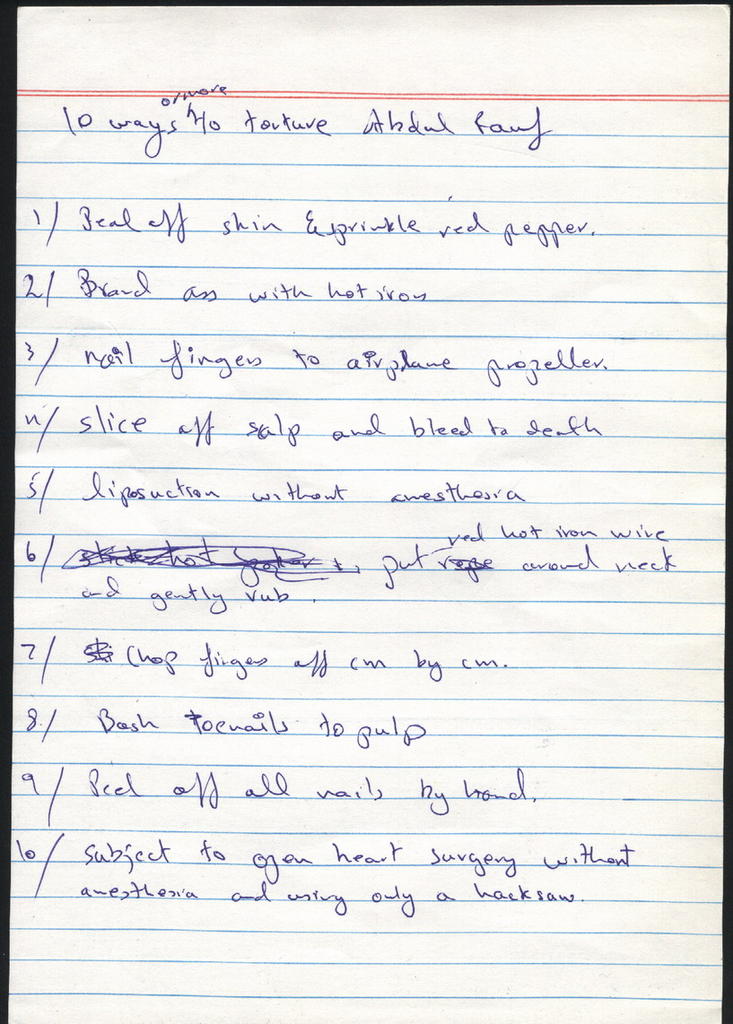 or more
10 ways to torture Abdul Rauf
1/ Peal off skin & sprinkle red pepper.
2/ Brand ass with hot iron
3/ nail fingers to airplane propeller.
4/ slice off salp and bleed to death
5/ liposuction without anesthesia
red hot iron wire
6/ put around neck
and gently rub.
7/ Chop fingers off cm by cm.
8/ Bash toenails to pulp
9/ Peel off all nails by hand.
10/ subject to open heart surgery without
anesthesia and using only a hacksaw.